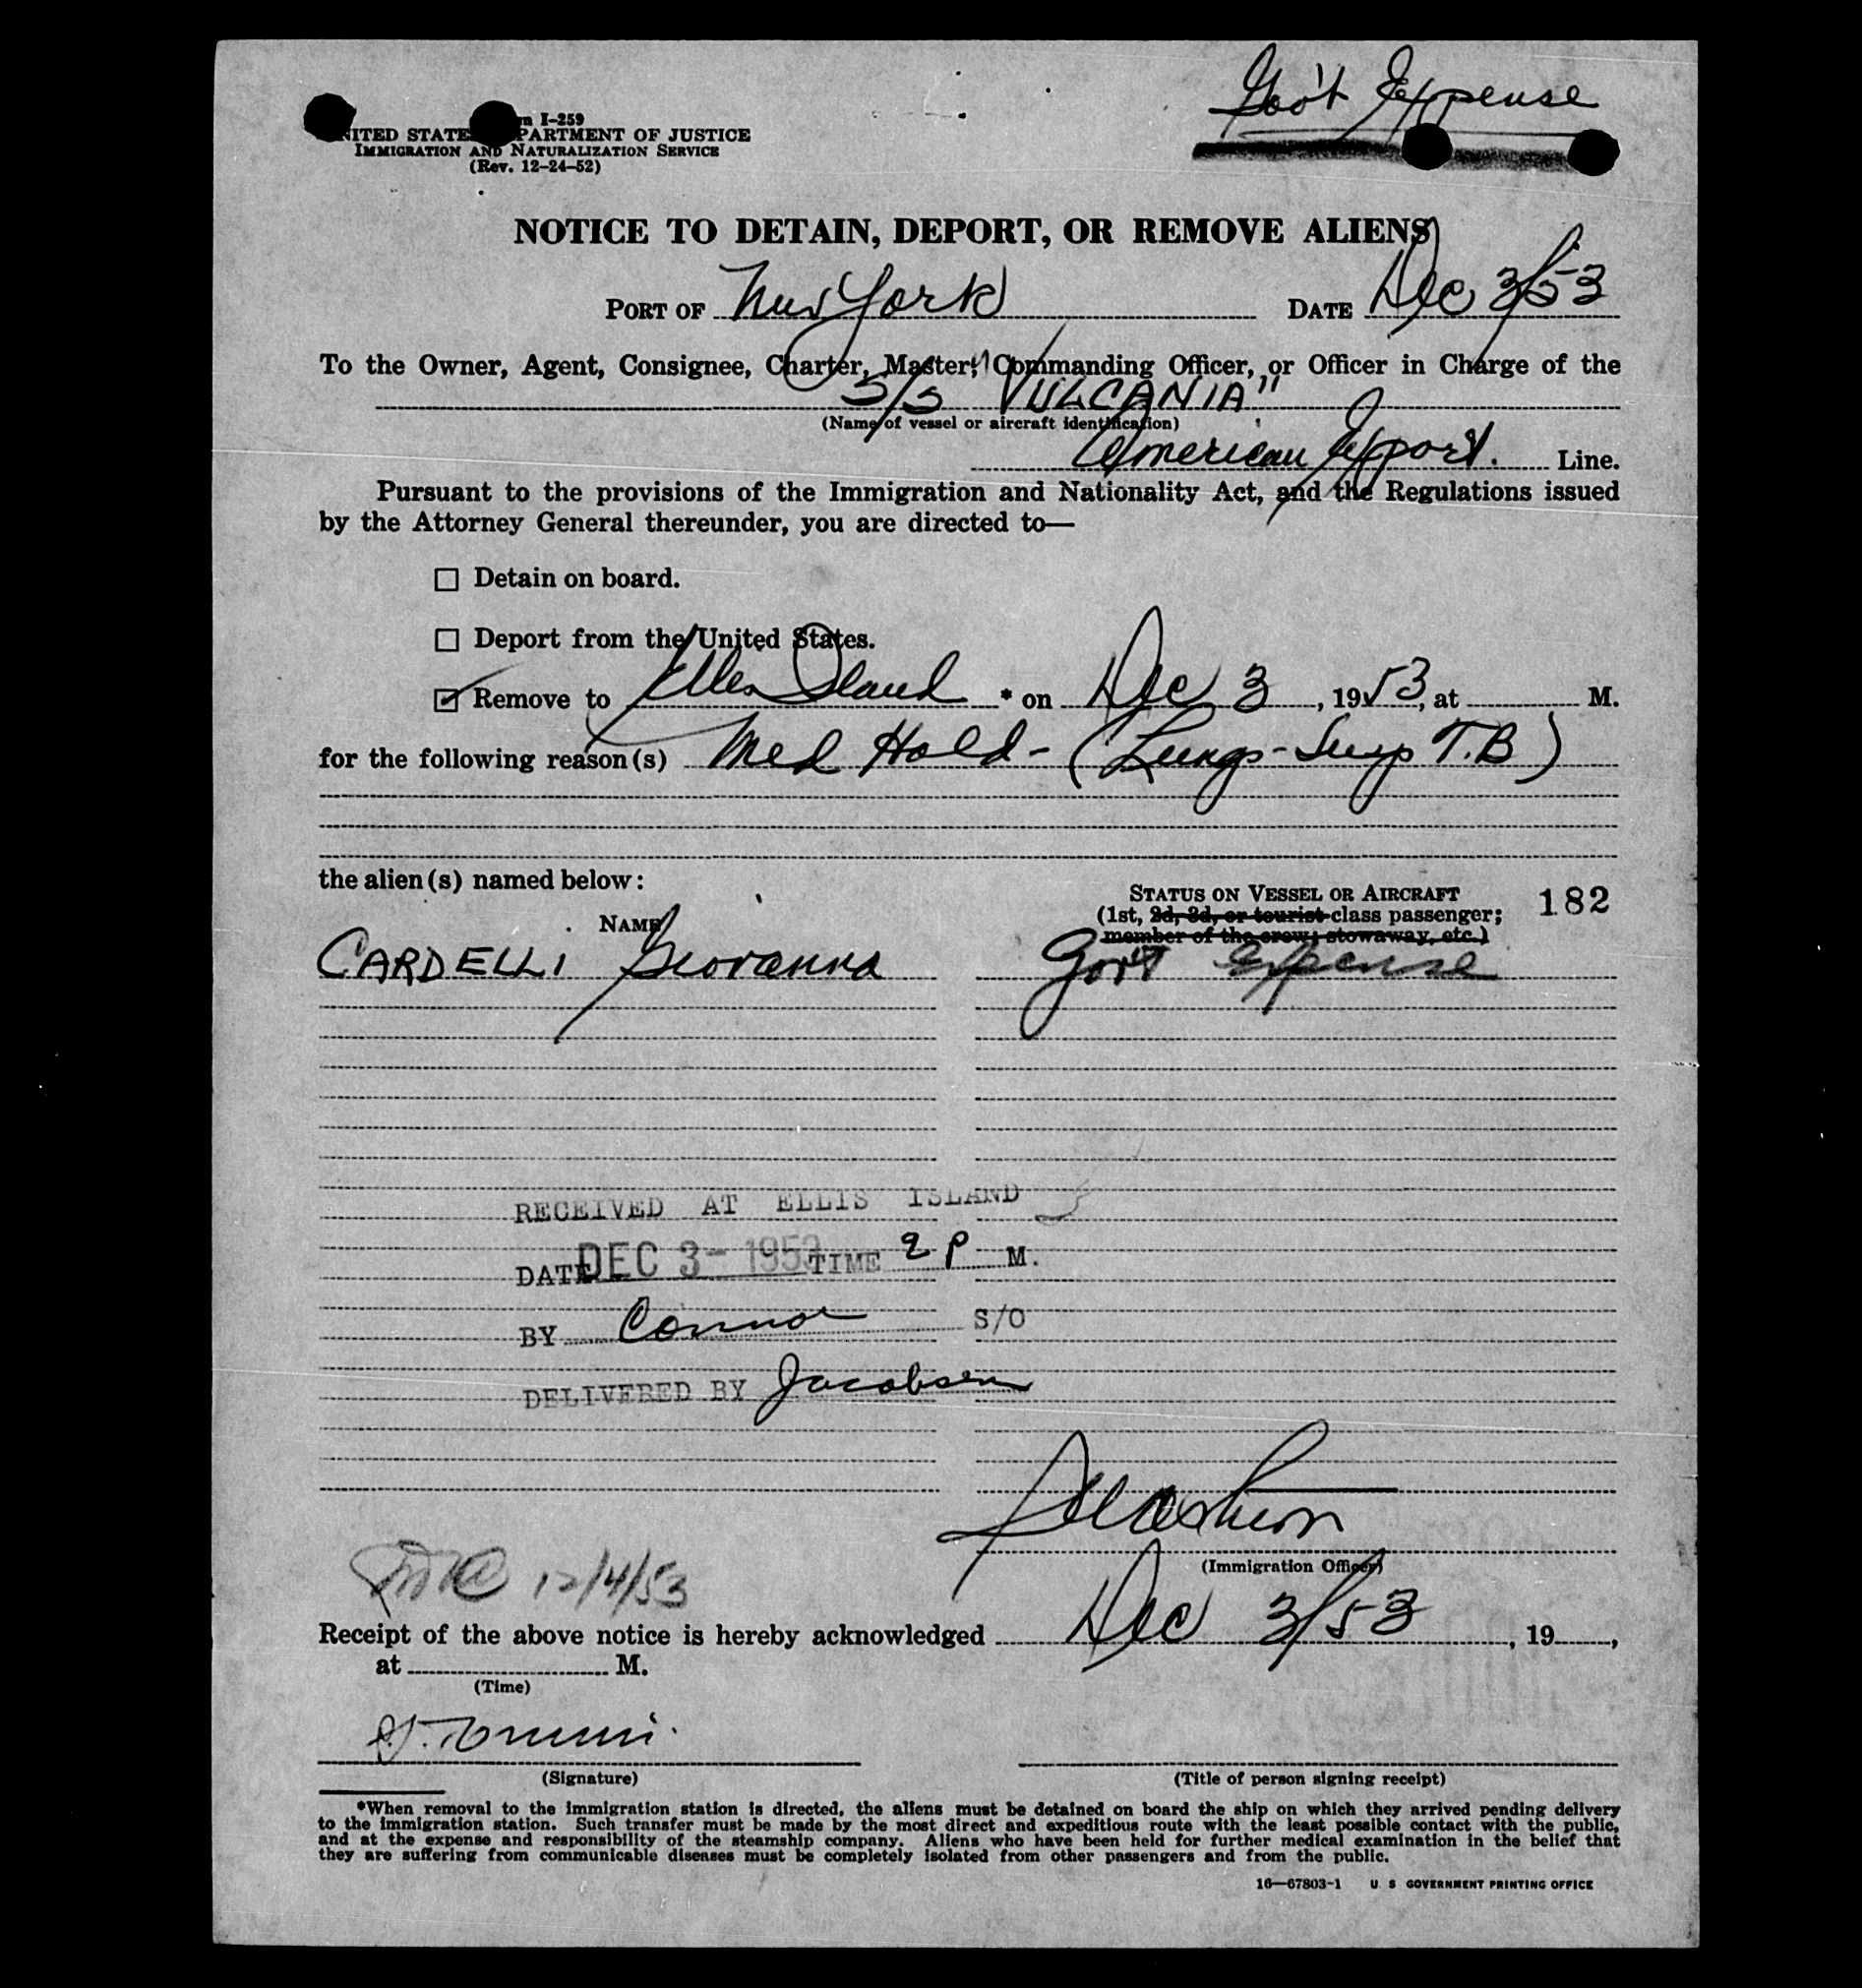 Gov't Expense
m I-259
NITED STATE PARTMENT OF JUSTICE
IMMIGRATION AND NATURALIZATION SERVICE
(Rev. 12-24-52)
NOTICE TO DETAIN, DEPORT, OR REMOVE ALIENS
PORT OF New York DATE Dec 3/53
To the Owner, Agent, Consignee, Charter, Master, Commanding Officer, or Officer in Charge of the
S/S "VULCANIA"
(Name of vessel or aircraft identification)
American Export. Line.
Pursuant to the provisions of the Immigration and Nationality Act, and the Regulations issued
by the Attorney General thereunder, you are directed to—
☐ Detain on board.
☐ Deport from the United States.
☑ Remove to Ellis Island * on Dec 3, 1953, at M.
for the following reason(s) Med Hold - (Lungs - Susp T.B)
the alien(s) named below:
STATUS ON VESSEL OR AIRCRAFT 182
(1st, 2d, 3d, or tourist class passenger;
member of the crew; stowaway, etc.)
NAME
CARDELLI Giovanna Gov't Expense
RECEIVED AT ELLIS ISLAND
DATE DEC 3- 1953 TIME 2 P M.
BY Connor S/O
DELIVERED BY Jacobsen
(Immigration Officer)
12/4/53
Receipt of the above notice is hereby acknowledged Dec 3/53, 19 ,
at M.
(Time)
(Signature) (Title of person signing receipt)
*When removal to the immigration station is directed, the aliens must be detained on board the ship on which they arrived pending delivery
to the immigration station. Such transfer must be made by the most direct and expeditious route with the least possible contact with the public,
and at the expense and responsibility of the steamship company. Aliens who have been held for further medical examination in the belief that
they are suffering from communicable diseases must be completely isolated from other passengers and from the public.
16—67803-1 U. S. GOVERNMENT PRINTING OFFICE